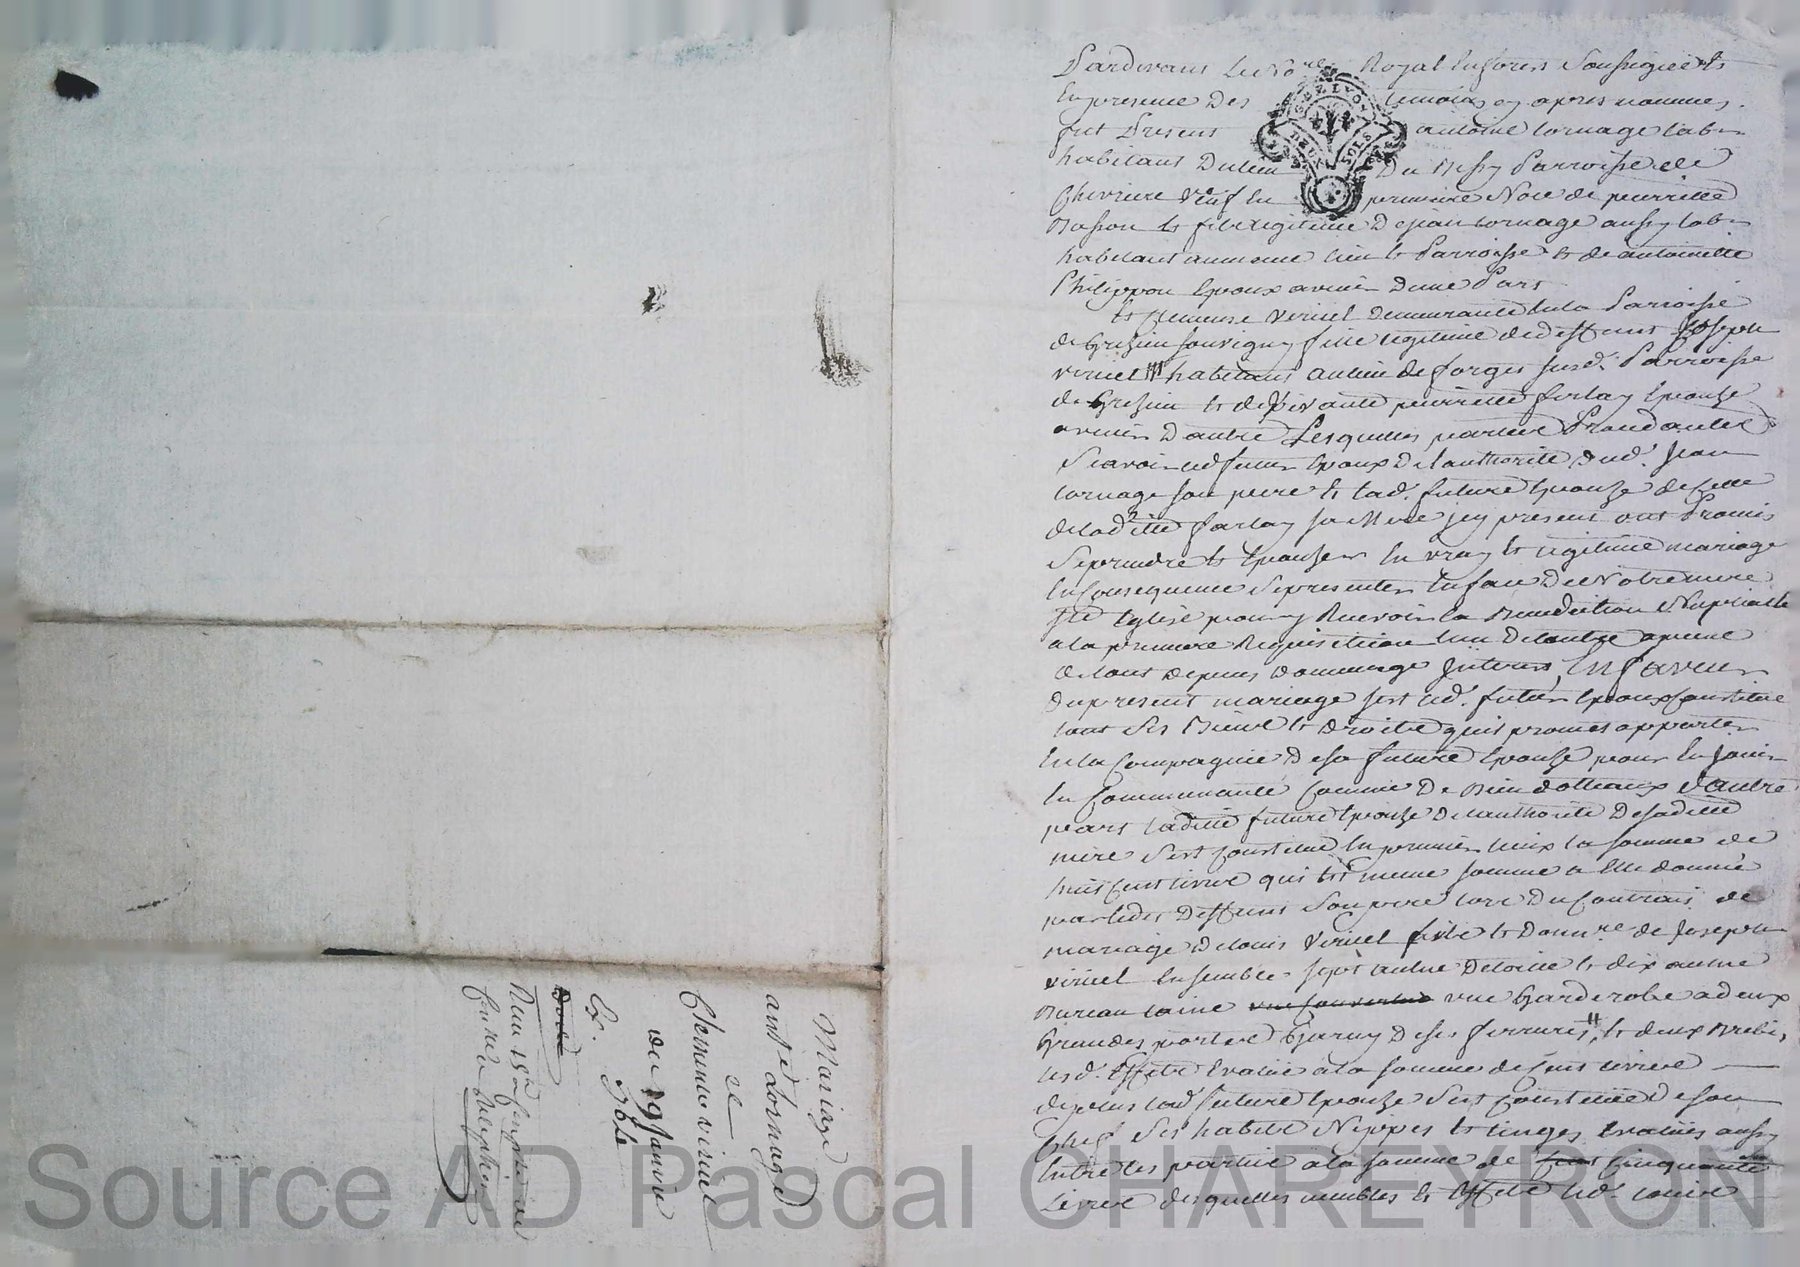 Mariage
ant.e Lornage
et
Clemence viricel
du 9 Janvier
Ex.
Pardevant Le No.re Royal En forest Soussigné et
En presence Des temoins cy apres nommes,
fut Present antoine Lornage lab.r
habitant Du lieu Du Parroisse de
Chevriere veuf En premiere Noce de pierrette
et fils legitime De jean Lornage aussy lab.r
habitant au meme lieu et Parroisse et de antoinette
Philippon Epoux avenir Dune Part
Et Clemence viricel Demeurante En la Parroisse
de Grezieu Souvigny fille legitime de deffunt Joseph
viricel habitant au lieu de forges Susd. Parroisse
de Grezieu et de vivante pierrette ferlay Epouze
avenir D'autre Lesquelles parties Procedantes
Scavoir led futur Epoux De l'authorité Dud. Jean
Lornage son pere et lad. future Epouze de Celle
de lad.itte ferlay sa Mere jcy present ont Promis
Se prendre et Epouser En vray et legitime mariage
En Consequence Se presenter En face De Notre mere
S.te Eglise pour y Recevoir la Benediction Nuptialle
a la premiere Requisition L'un De l'autre a peine
de tout depens Dommage Interets, En faveur
du present mariage s'est led. futur Epoux Constitué
tout Ses Biens et droits qu'il promet apporter
En la Compagnie De sa future Epouze pour En Jouir
En Communauté Comme De Bien dotteaux D'autre
part laditte future Epouze De l'authorité De saditte
mere S'est Constitué En premier lieux la somme de
huit Cent livres qui Est meme somme a Elle donnée
par ledit Deffunt Son pere lors Du Contrait de
mariage De louis Viricel fils et Donn.re de Joseph
viricel Ensemble Sept aulne De toille et dix aulne
Bureau laine une Couverture une Garderobe a deux
Grandes portes Garny De ses ferrures, et deux Brebis,
lesd. Effets Evalué à la somme de Cent livres
de plus lad. future Epouze S'est Constituée De son
Chef Ses habits Nippes et linges Evalués aussy
Entre les parties à la somme de Cent Cinquante
Livres desquelles meubles et Effets led. Louis
GE.DE LYON
DEUX SOLS
Source AD Pascal CHAREYRON